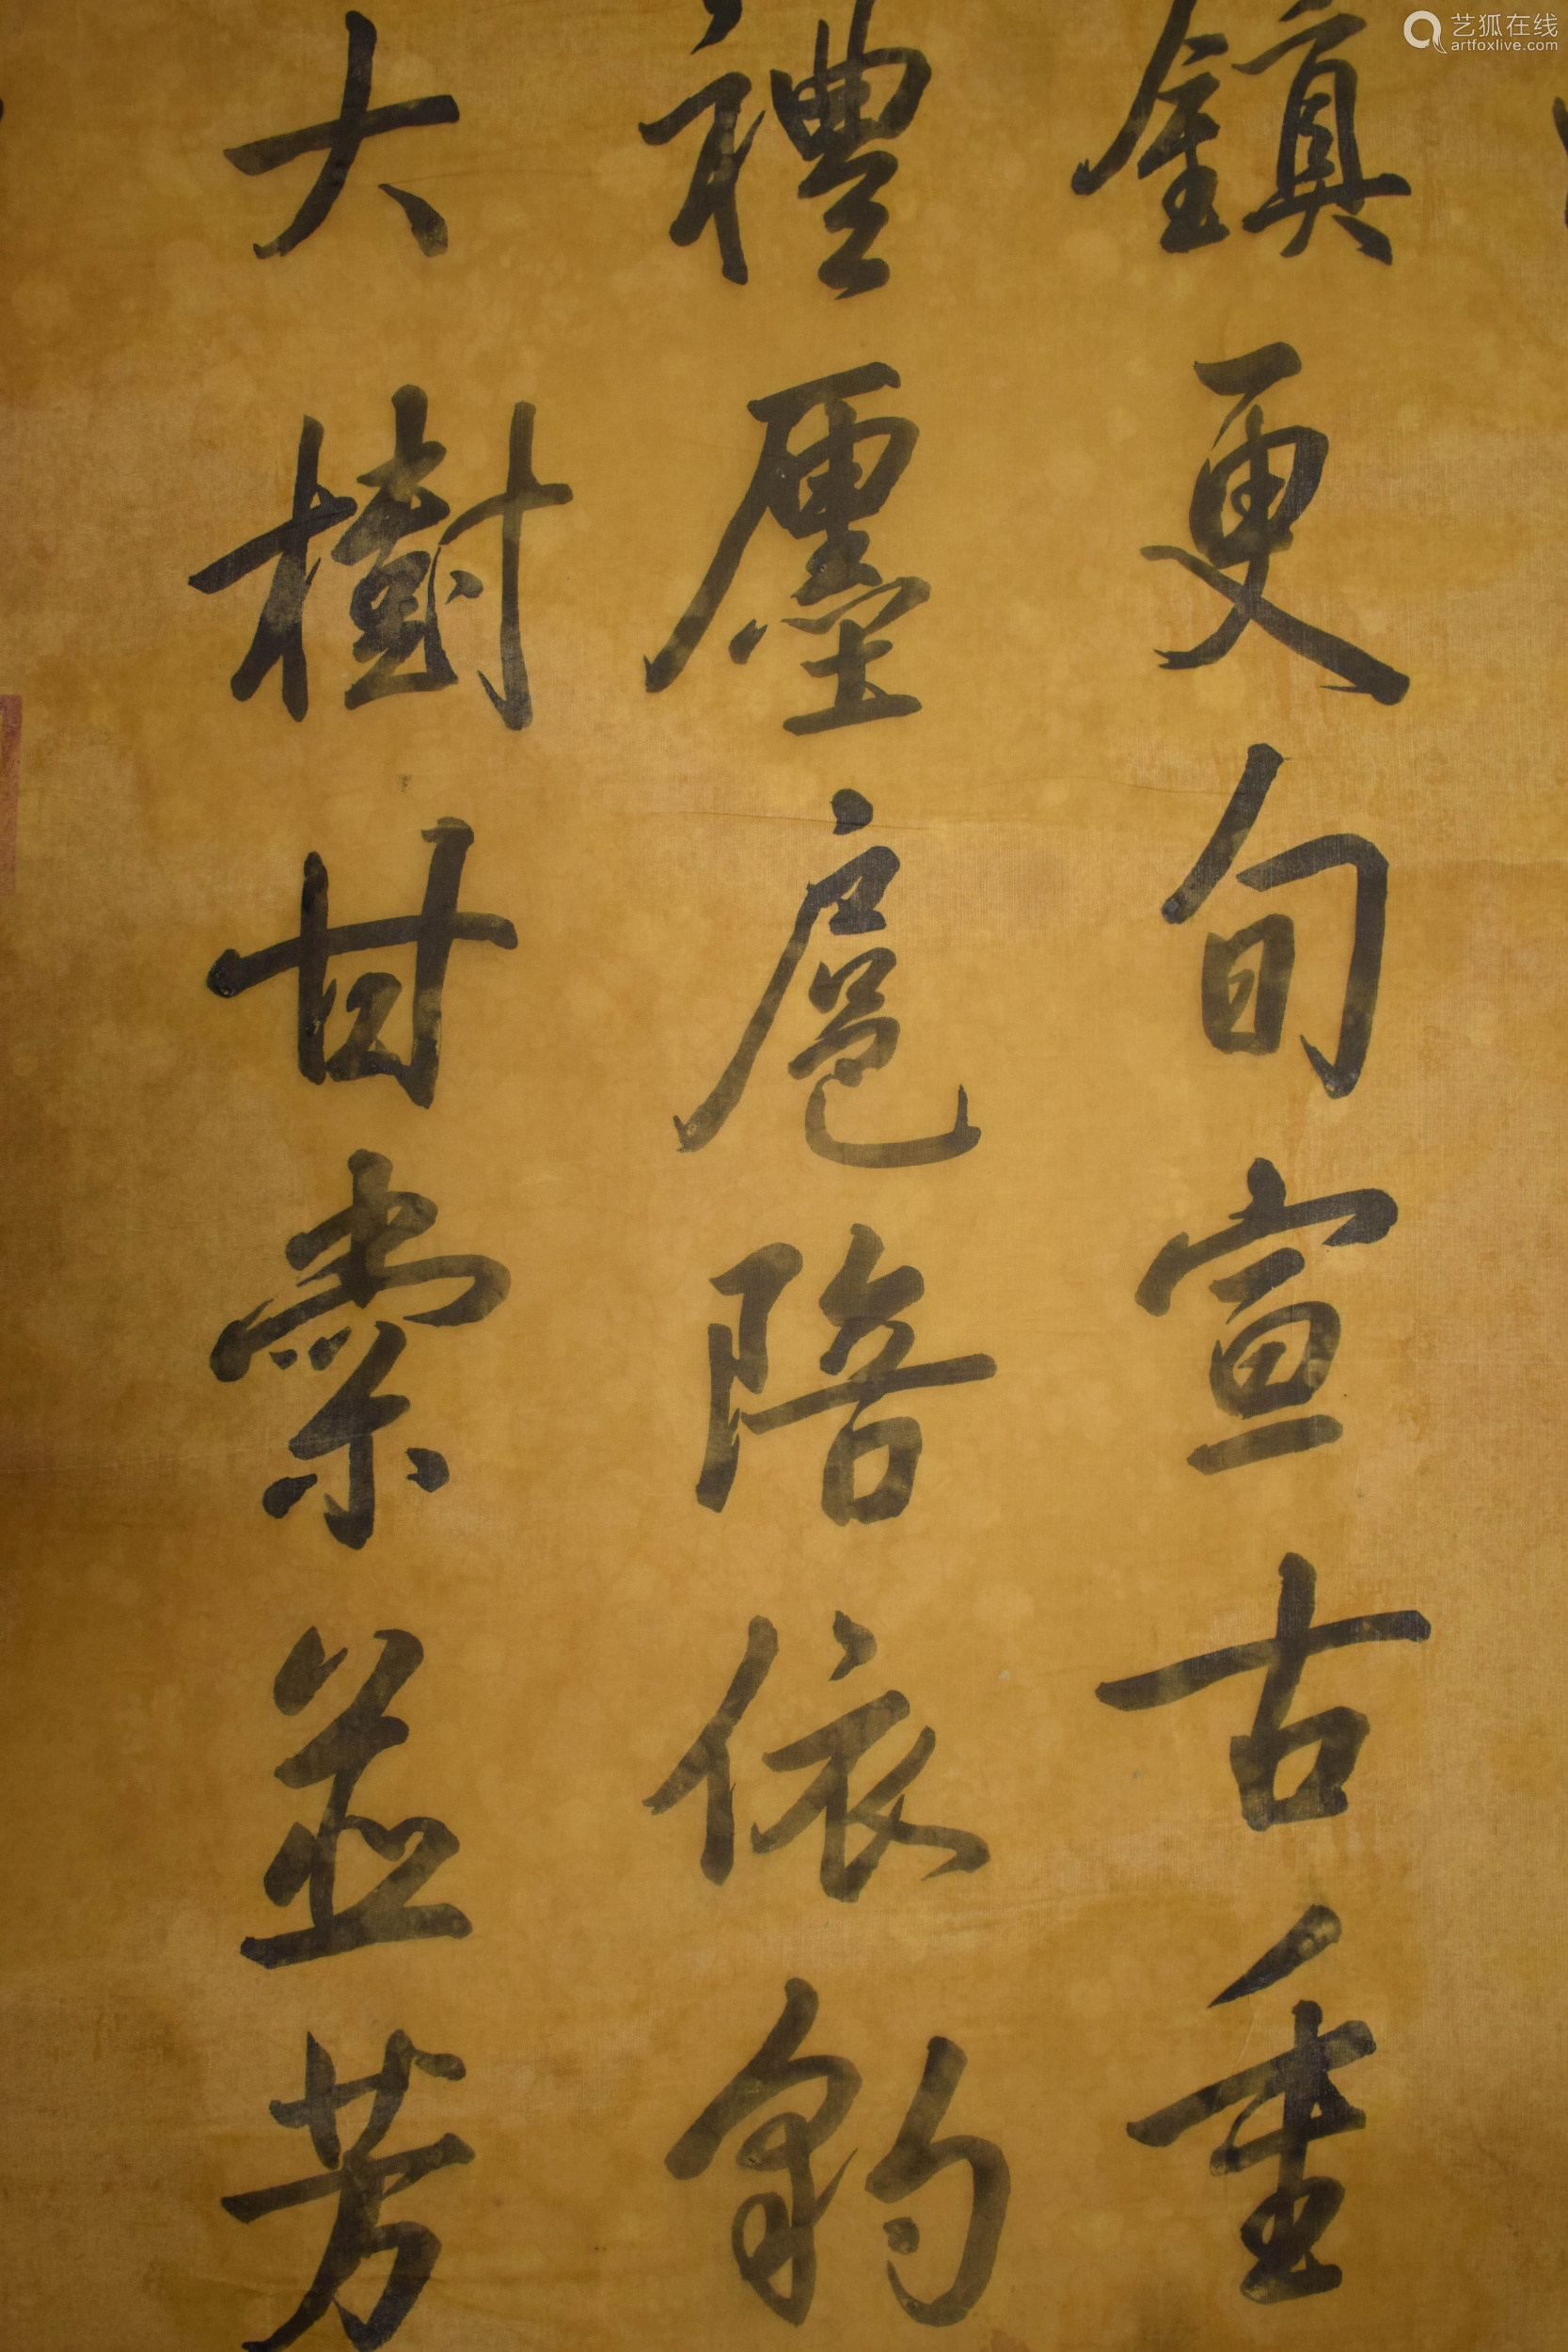 艺狐在线
artfoxlive.com
鎮更旬宣古重
禮廛扈陪依豹
大樹甘棠並芳